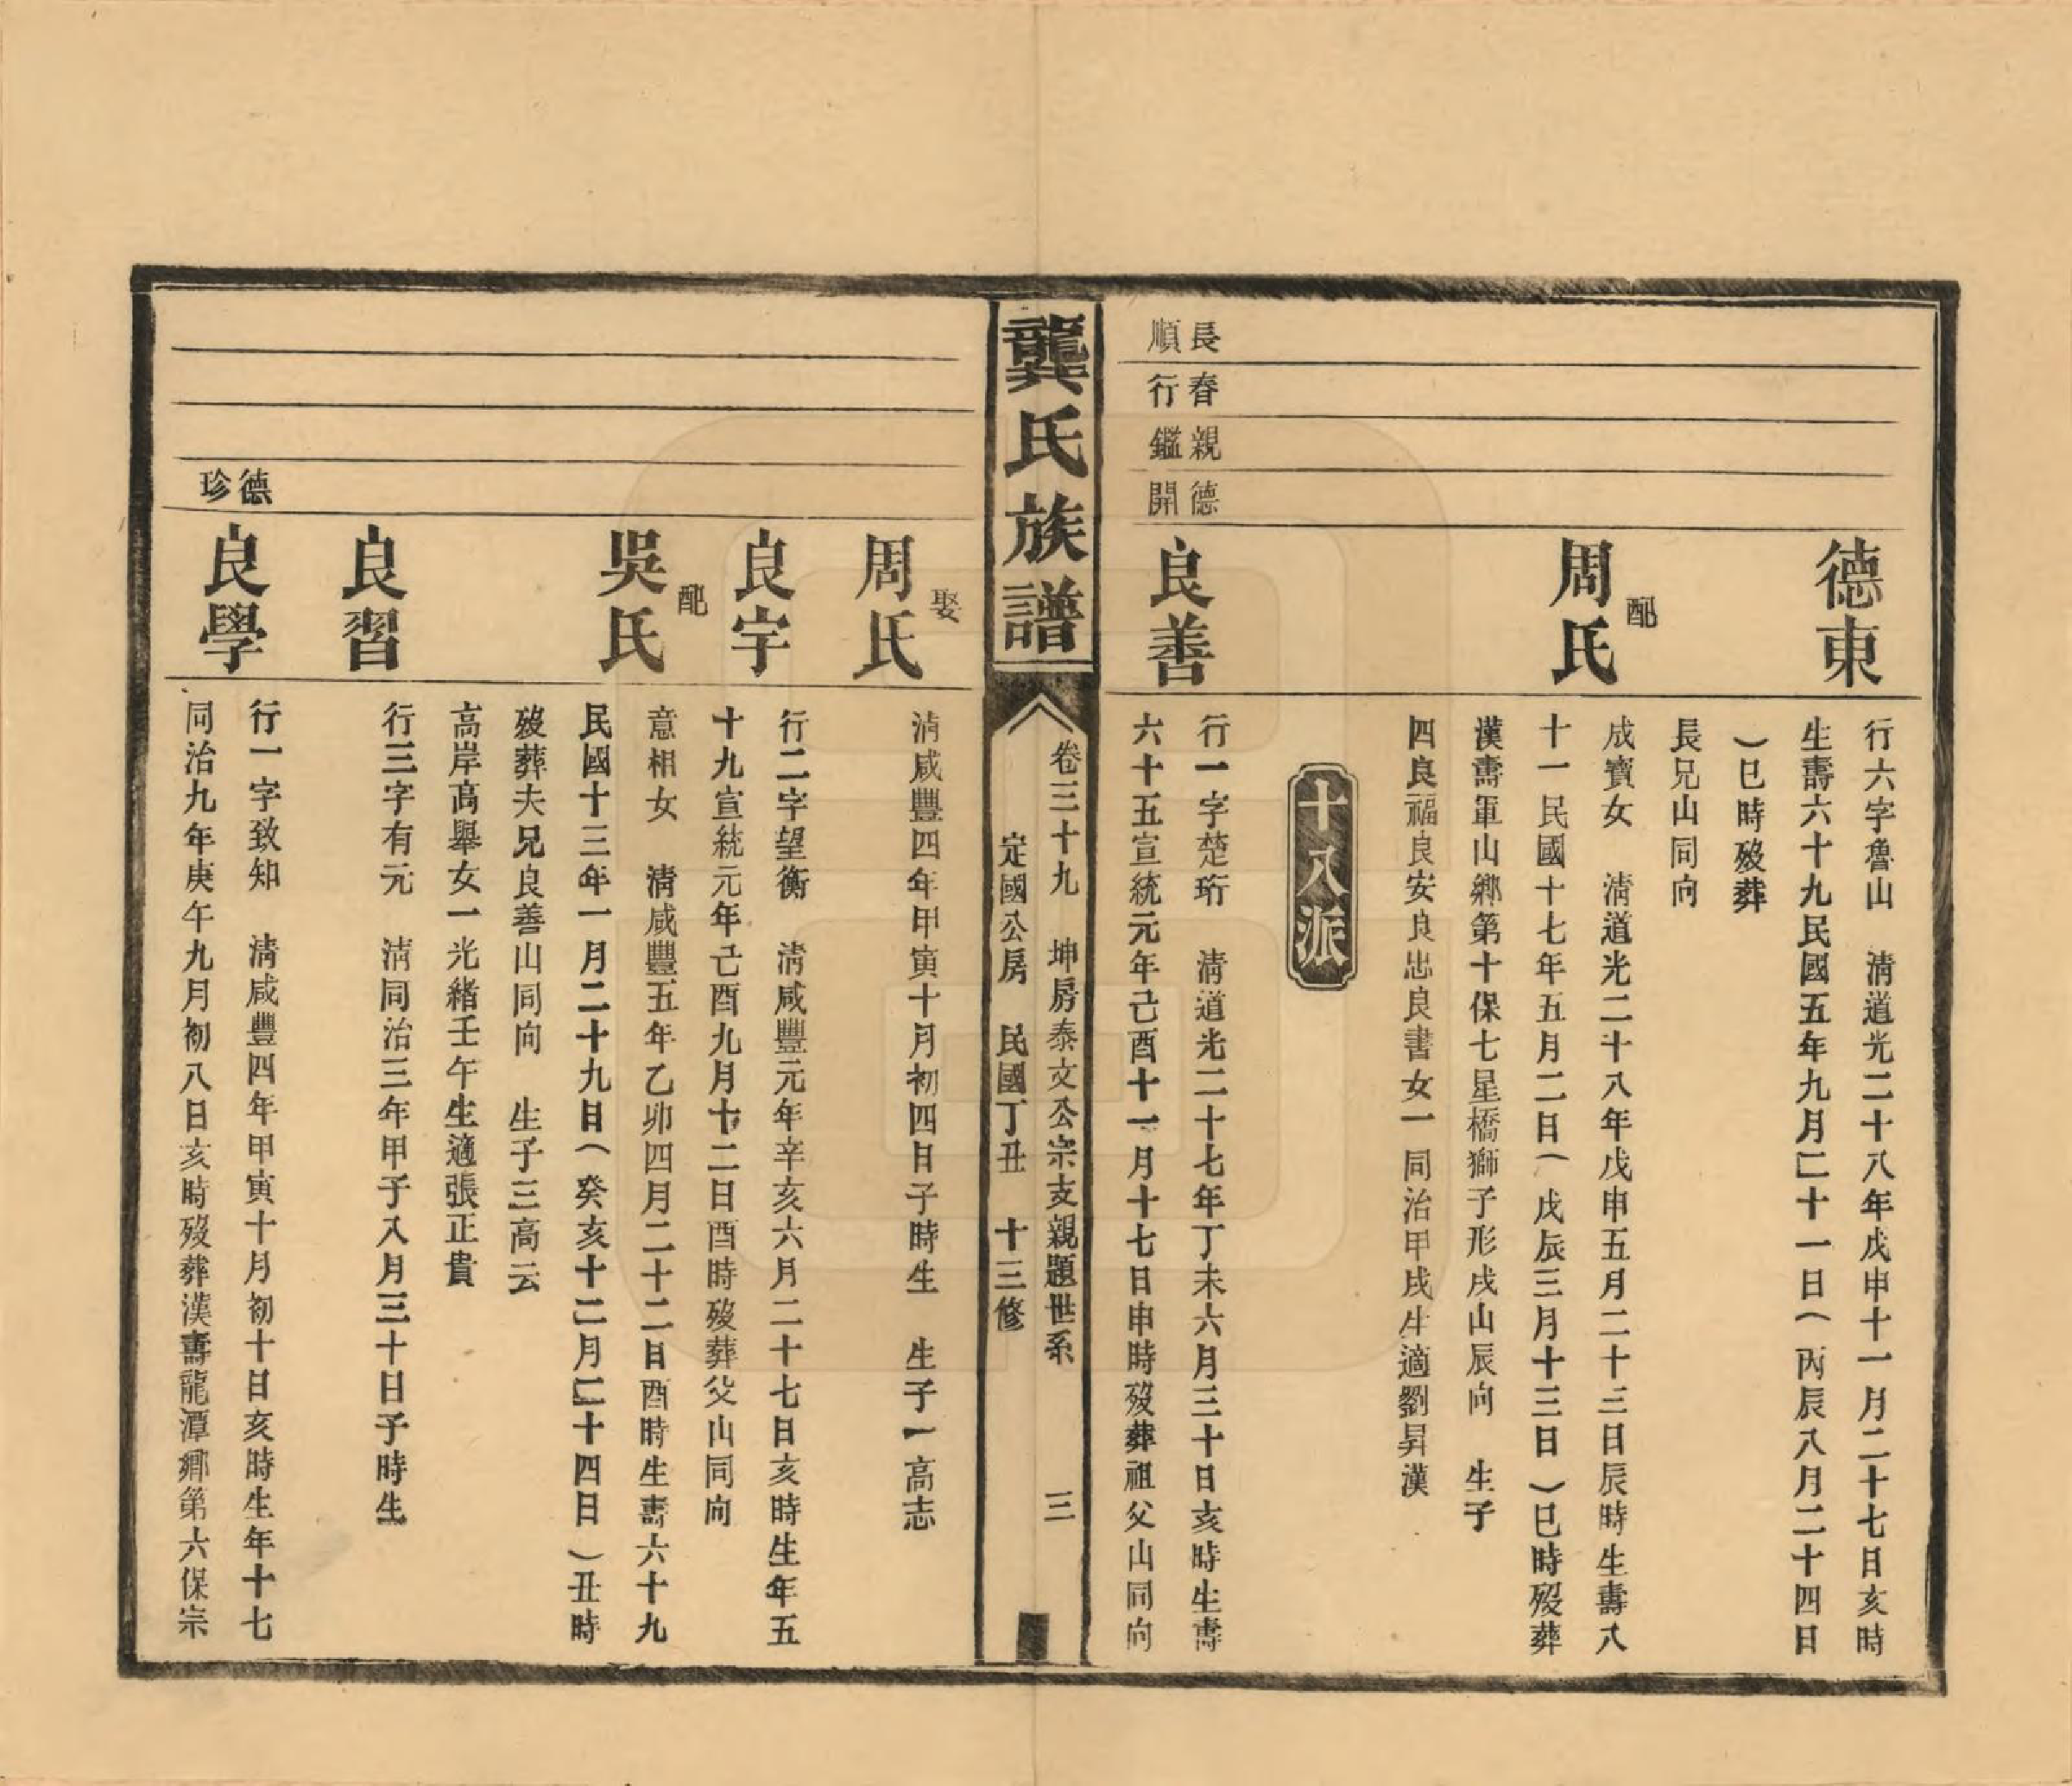 德東
行六字魯山　清道光二十八年戊申十一月二十七日亥時
生壽六十九民國五年九月二十一日（丙辰八月二十四日
）巳時歿葬
長兄山同向
配
周氏
成寶女　清道光二十八年戊申五月二十三日辰時生壽八
十一民國十七年五月二日（戊辰三月十三日）巳時歿葬
漢壽軍山鄉第十保七星橋獅子形戌山辰向　生子
四良福良安良忠良書女一同治甲戌生適劉昇漢
十八派
長春親德
順行鑑開
良善
行一字楚珩　清道光二十七年丁未六月三十日亥時生壽
六十五宣統元年己酉十一月十七日申時歿葬祖父山同向
龔氏族譜
卷三十九　坤房泰文公宗支親題世系　三
定國公房　民國丁丑　十三修
娶
周氏
清咸豐四年甲寅十月初四日子時生　生子一高志
良宇
行二字望衡　清咸豐元年辛亥六月二十七日亥時生年五
十九宣統元年己酉九月十二日酉時歿葬父山同向
配
吳氏
意相女　清咸豐五年乙卯四月二十二日酉時生壽六十九
民國十三年一月二十九日（癸亥十二月二十四日）丑時
歿葬夫兄良善山同向　生子三高云
高岸高舉女一光緒壬午生適張正貴
良習
行三字有元　清同治三年甲子八月三十日子時生
德
珍
良學
行一字致知　清咸豐四年甲寅十月初十日亥時生年十七
同治九年庚午九月初八日亥時歿葬漢壽龍潭鄉第六保宗